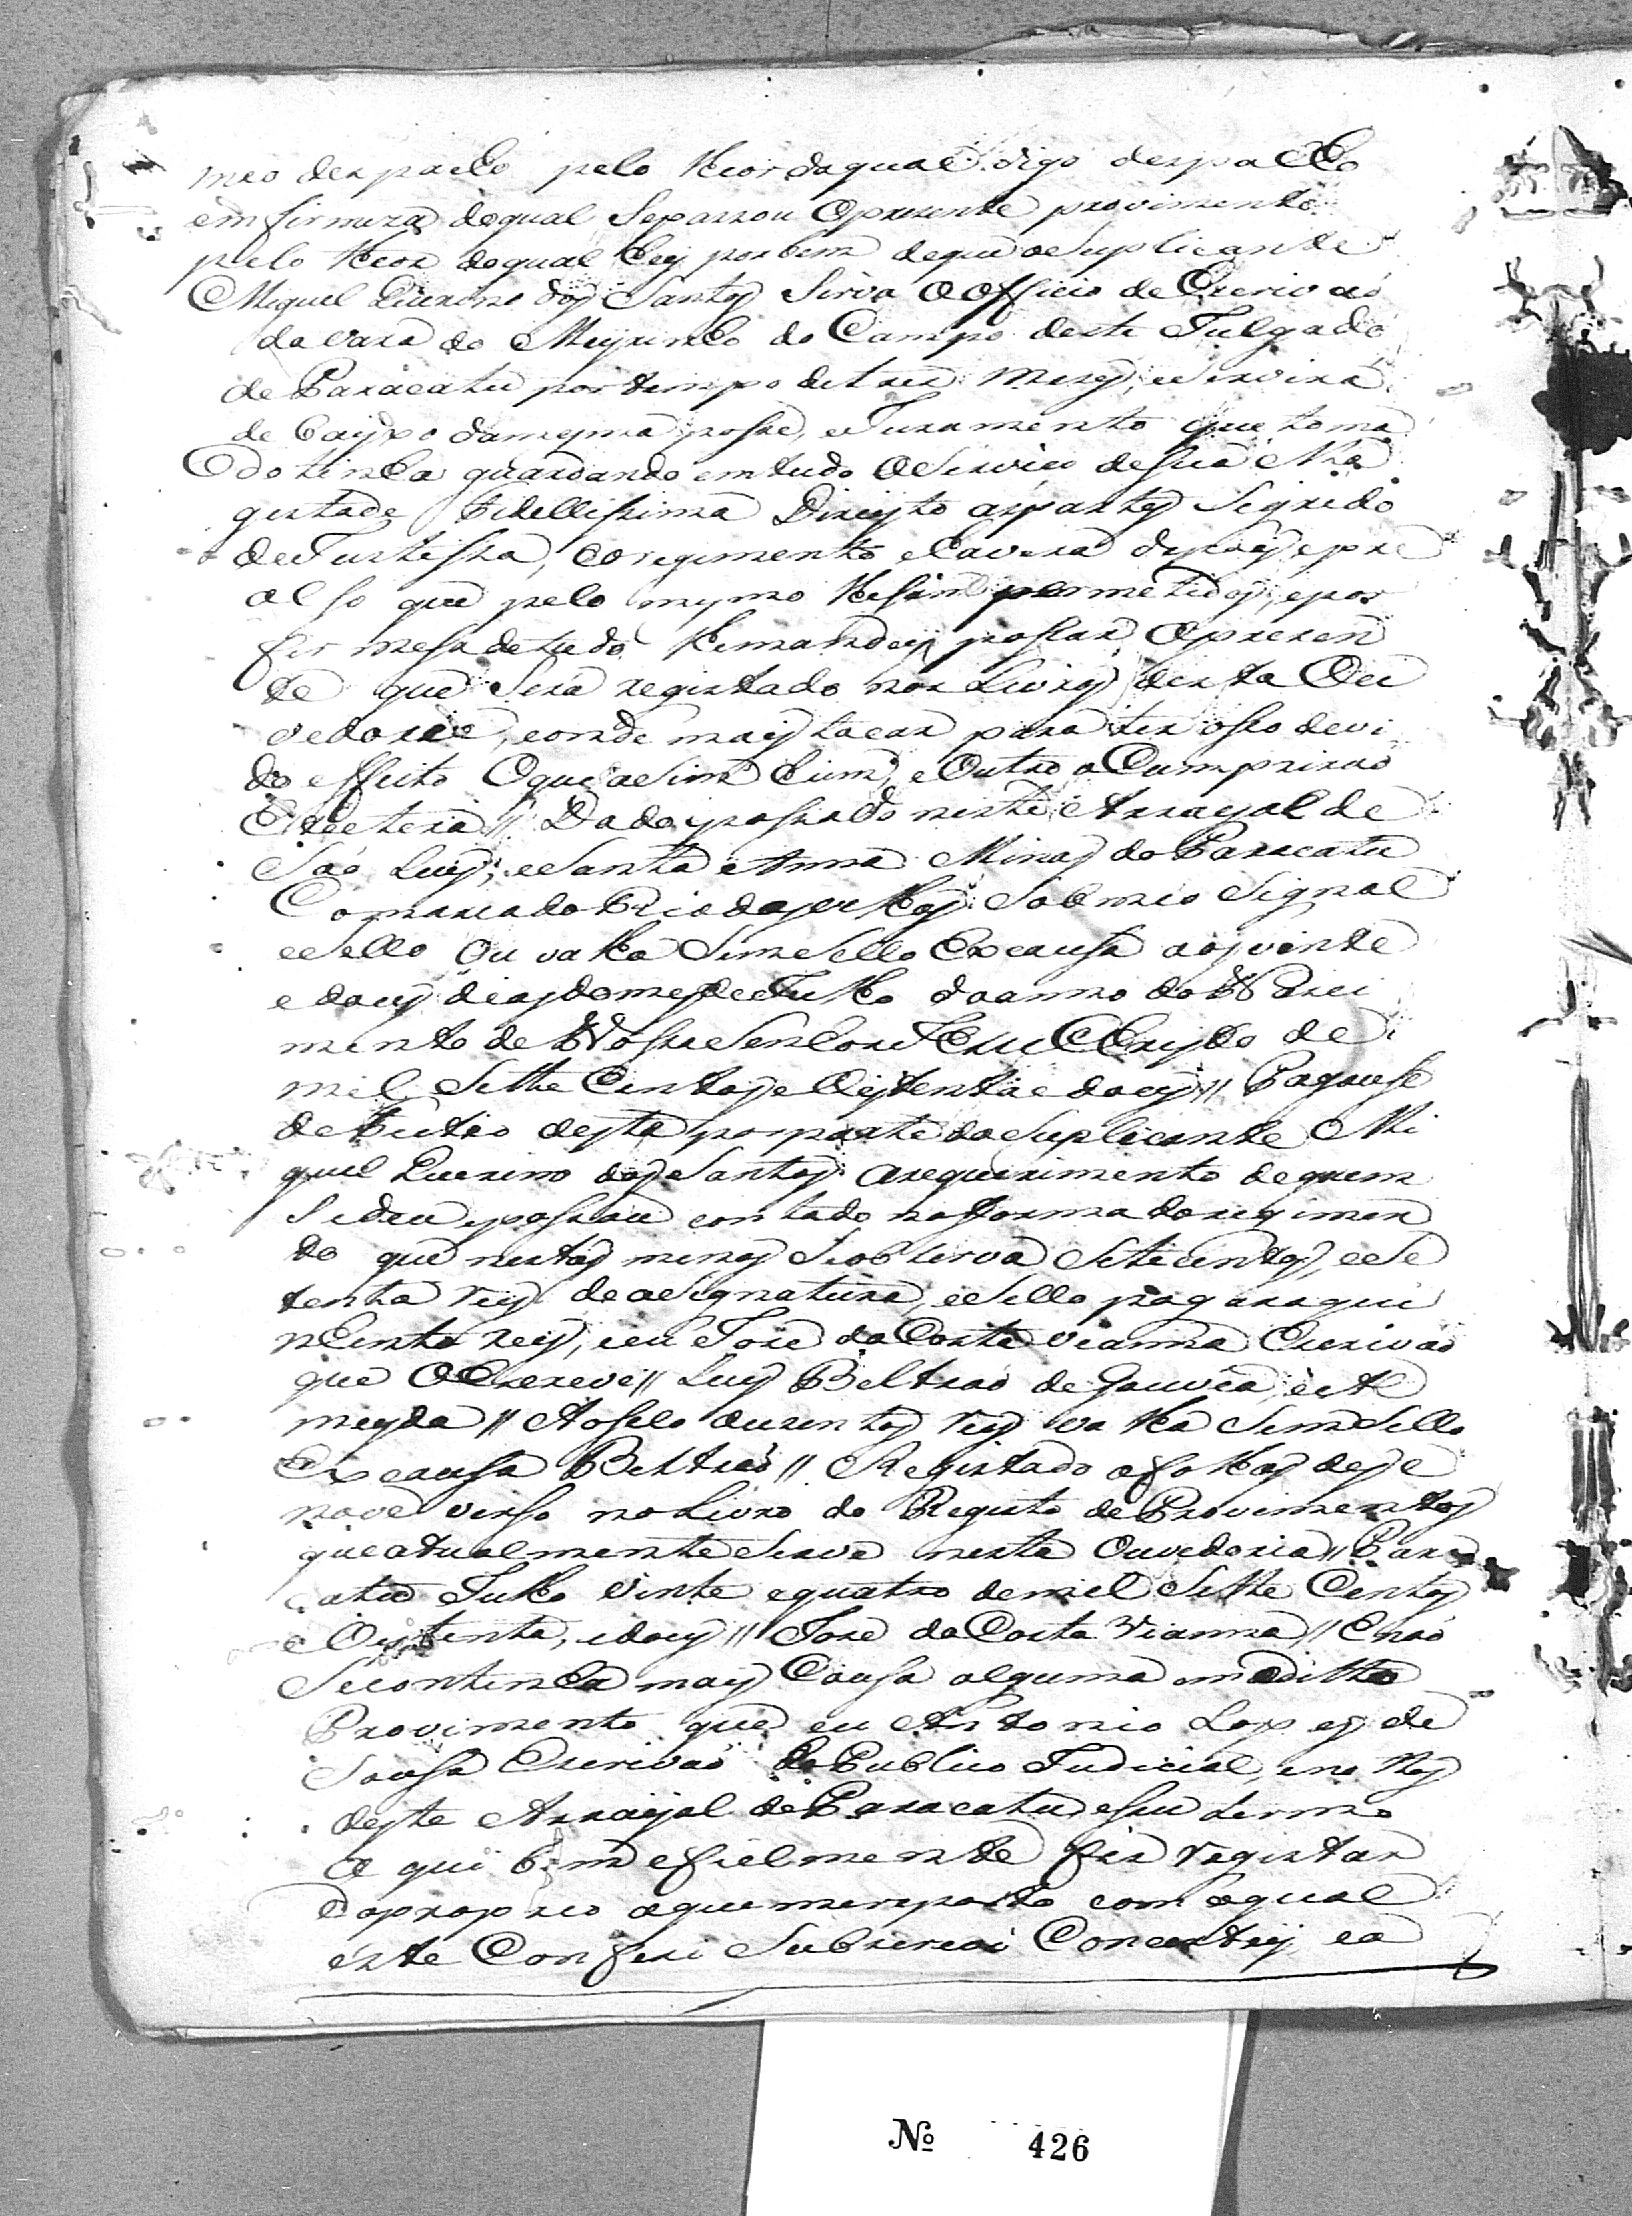 meo despacho pelo theor do qual digo despacho
em firmeza do qual Sepassou O prezente provimento
pelo theor do qual hey por bem de que o Suplicante
Miguel Querino dos Santos Sirva O Officio de Escrivaó
da vara do Meyrinho do Campo deste Julgado
de Paracatu por tempo de tres mezes, e Servira
de baiyxo da mesma posse, e Juramento que toma
do tinha guardando em tudo O Serviço de Sua Ma
gestade Fidellissima Direyto as partes Segredo
de Justissa, e o regimento e havera os proes e pre
calso que pelo mesmo lhe Sam permetidos, e por
firmesa de tudo lhe mandey passar O prezen
te que Será registado nos Livros desta Ou
vedoria, e onde mais tocar para ter o Seo devi
do effeito O que aSim hum, e Outro o Cumpriraó
Et Cetera // Dado e passado neste Arrayal de
Saó Luis, e Santa Anna Minas do Paracatu
Comarca do Rio das velhas Sob meo Signal
e Sello Ou valha Sem Sello Ex causa aos vinte
e dous dias do mes de Julho do anno do Nasci
mento de Nosso Senhor JEsu CHristo de
mil Sette Centos e Oytenta e dous // Pagouse
de feitio desta por parte do Suplicante Mi
guel Querino dos Santos a requerimento de quem
Se deu e passou contado na forma do regimen
to que nestas minas Se observa Setecentos, e Se
tenta reis de aSignatura, e Sello pagara qui
nhentos reis, e eu Joze da Costa Vianna Escrivaó
que O Escrevi // Luis Beltraó de Gouvea, e Al
meyda // Ao Selo duzentos reis valha Sem Sello
Ex causa Beltraó // Registado a folhas deze
nove verso no Livro do Registo de Provimentos
que atualmente Serve nesta Ouvedoria // Para
catu Julho vinte e quatro de mil Sette Centos
e Oytenta, e dous // Joze da Costa Vianna // E naó
Se continha mais Cousa alguma em o ditto
Provimento que eu Antonio Lopes de
Sousa Escrivaó do Publico Judicial, e notas
deste Arrayal de Paracatu e Seu termo
a qui bem e fielmente fis registar
do proprio a que me reporto com o qual
este Conferi Subscrevi Concertey, e a
Nº 426